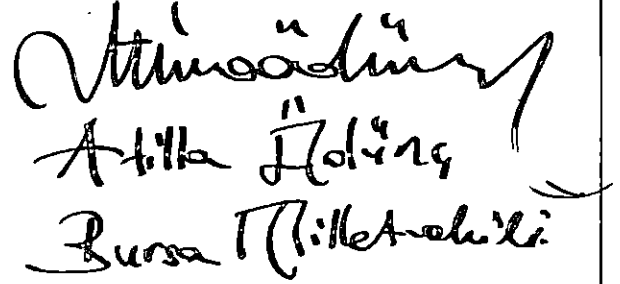 Atilla Ödünç
Bursa Milletvekili